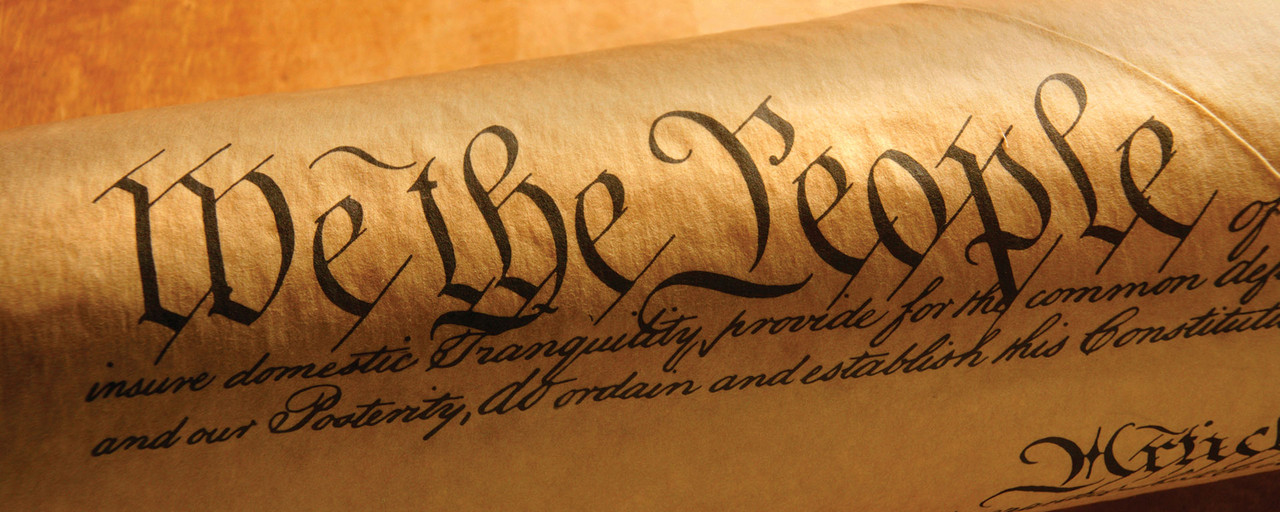 We the People of
insure domestic Tranquility, provide for the common def
and our Posterity, do ordain and establish this Constitut
Articl